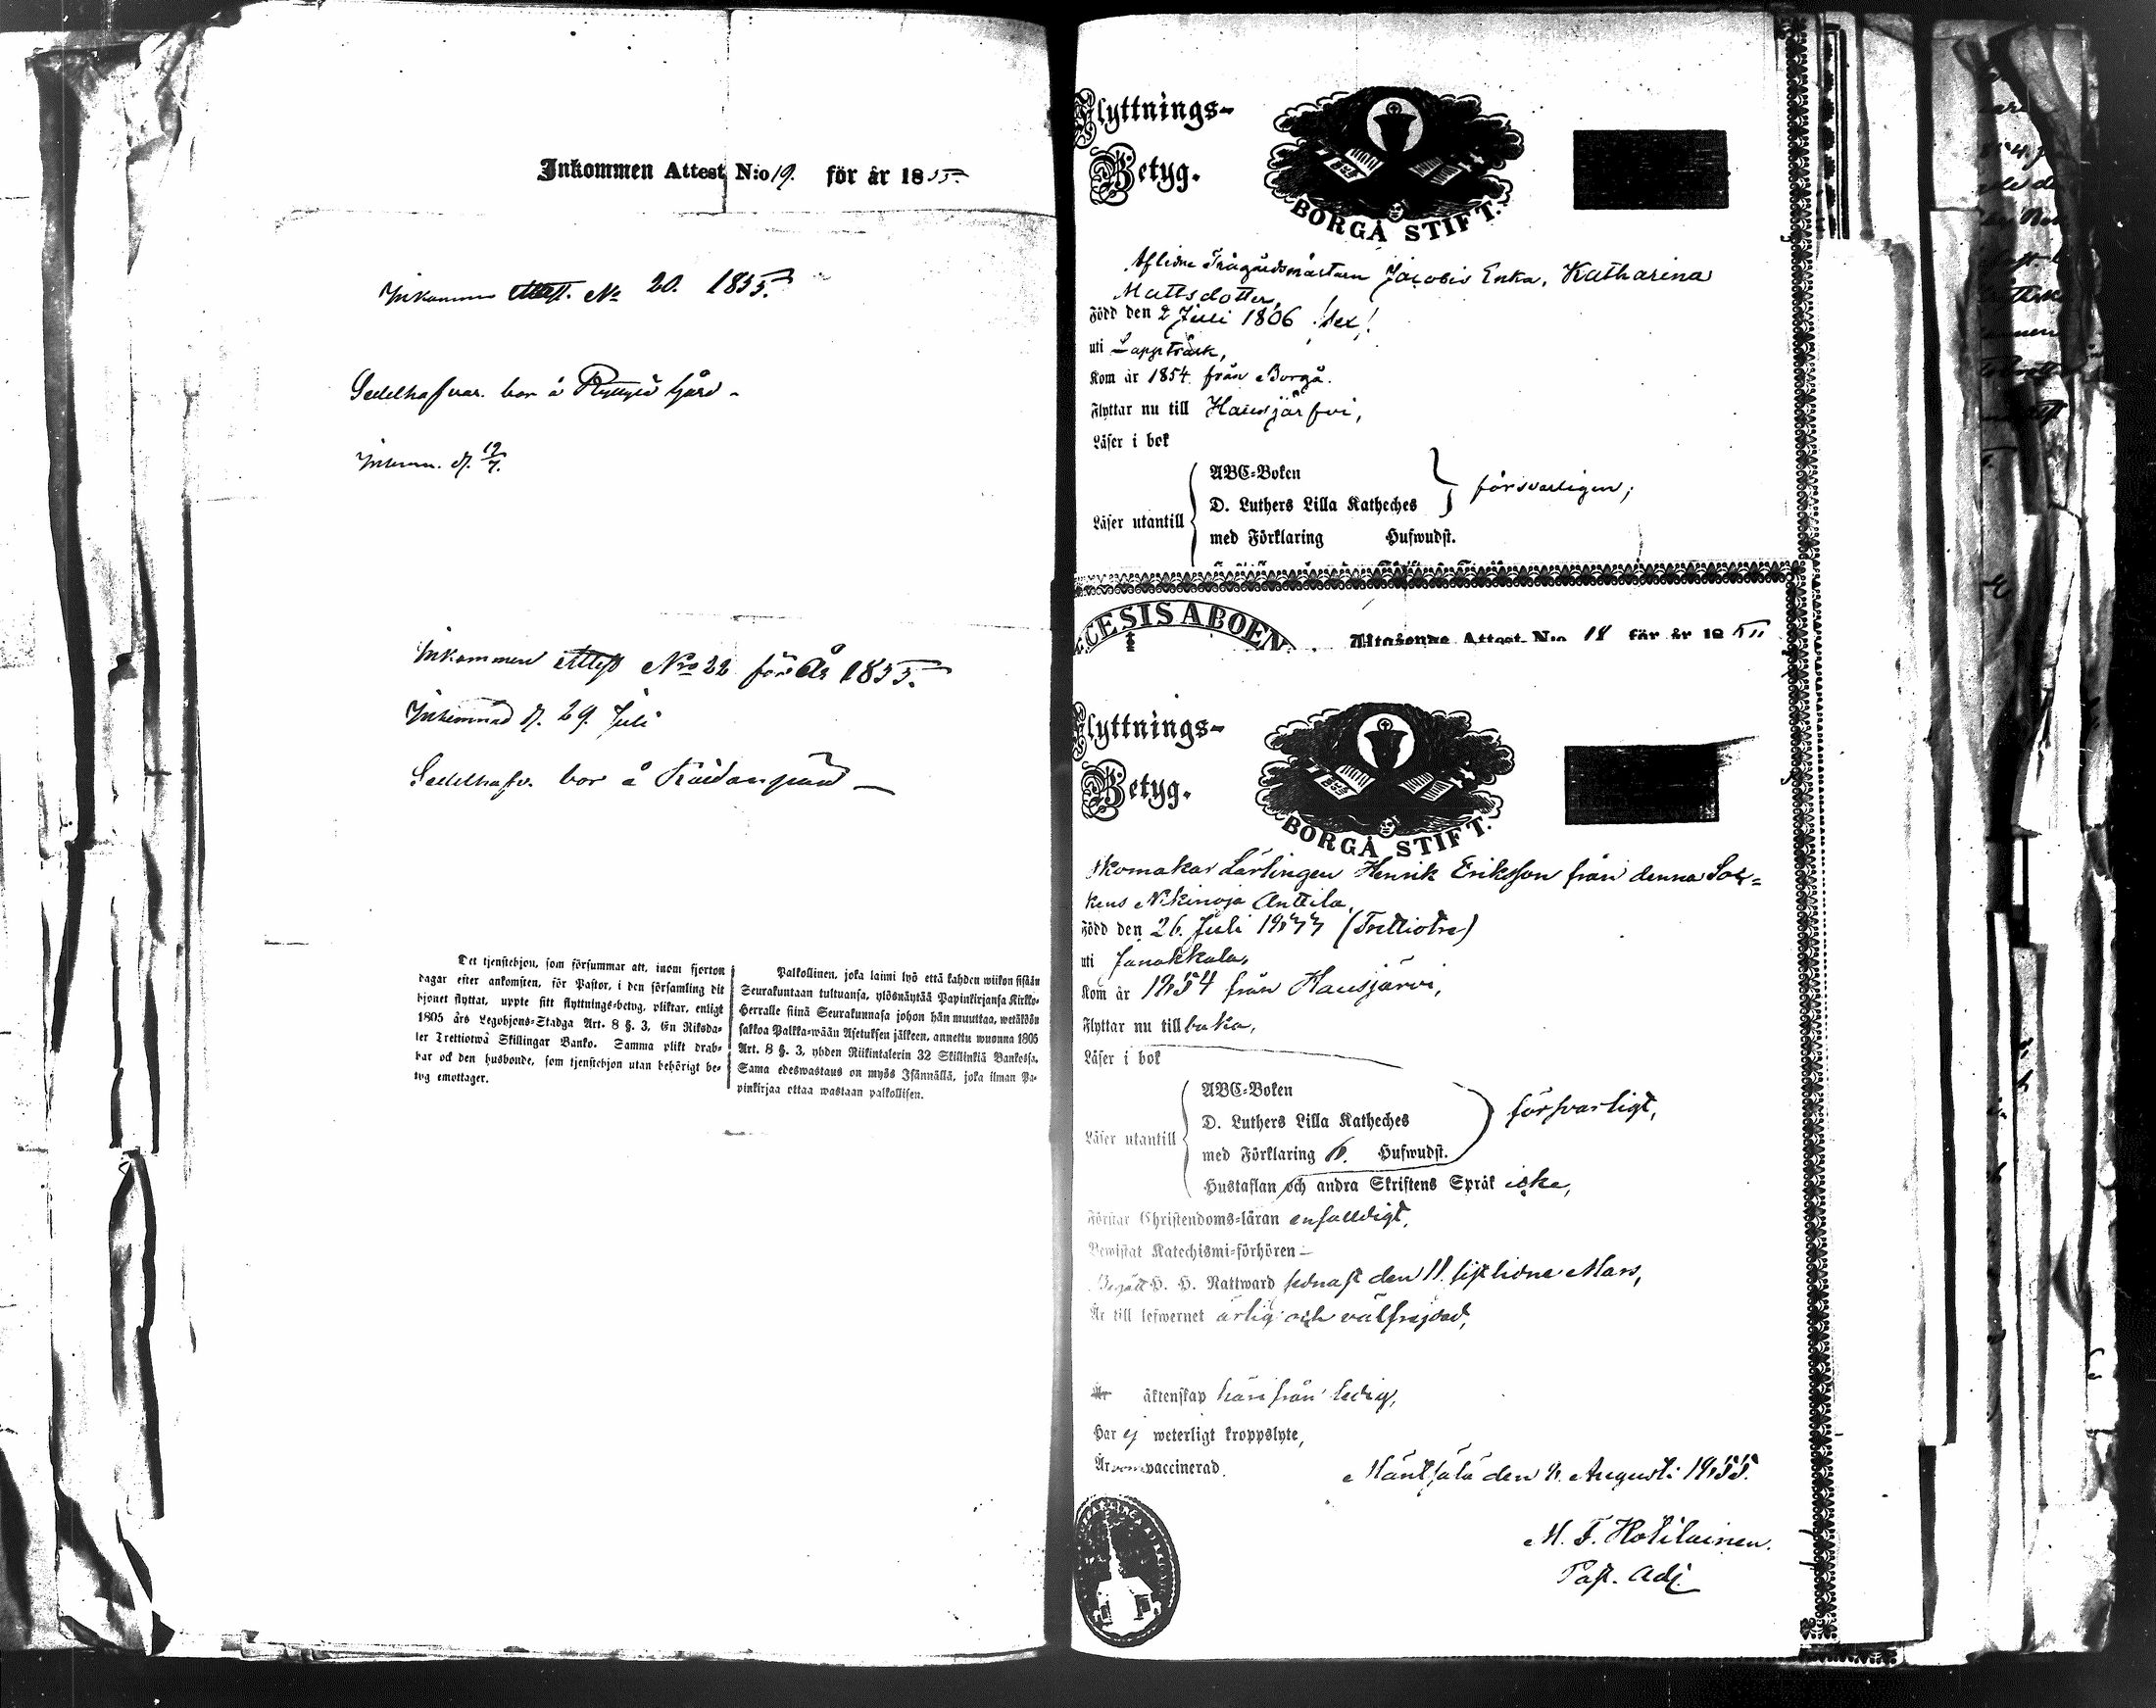 Inkommen Attest N:o 19. för år 1855.
Inkommen Attest. No 20. 1855.
Sedelhafvar. bor å gård -
d. 19/7.
Inkommen Attest Nro 22 för År 1855.
Inlemnad d. 29. Juli
Sedelhafv. bor å
Det tjenstehjon, som försummar att, inom fjorton
dagar efter ankomsten, för Pastor, i den församling dit
hjonet flyttat, uppte sitt flyttnings-betyg, pliktar, enligt
1805 års Legohjons-Stadga Art. 8 §. 3, En Riksda-
ler Trettiotwå Skillingar Banko. Samma plikt drab-
bar ock den husbonde, som tjenstehjon utan behörigt be-
tyg emottager.
Palkollinen, joka laimi lyö että kahden wiikon sisään
Seurakuntaan tultuansa, ylösnäytää Papinkirjansa Kirkko-
Herralle siinä Seurakunnasa johon hän muuttaa, wetäköön
sakkoa Palkka-wään Asetuksen jälkeen, annettu wuonna 1805
Art. 8 §. 3, yhden Riikintalerin 32 Skillinkiä Bankossa.
Sama edeswastaus on myös Isännällä, joka ilman Pa-
pinkirjaa ottaa wastaan palkollisen.
Flyttnings-
Betyg.
BORGÅ STIFT.
Aflidne Trägårdsmästarn Jacobis Enka, Katharina
Mattsdotter,
Född den 2 Juli 1806 /sex/
uti Lappträsk,
Kom år 1854 från Borgå.
Flyttar nu till Hausjärfvi,
Läser i bok
Läser utantill
ABC-Boken
D. Luthers Lilla Katheches
med Förklaring Hufwudst.
försvarligen;
CESIS ABOEN
Utgående Attest N:o 18 för år 1855
Flyttnings-
Betyg.
BORGÅ STIFT.
Skomakar Lärlingen Henrik Eriksson från denna Soc-
kens Nikinoja Anttila,
Född den 26. Juli 1833 (Trettiotre)
uti Janakkala,
Kom år 1854 från Hausjärvi,
Flyttar nu till baka,
Läser i bok
Läser utantill
ABC-Boken
D. Luthers Lilla Katheches
med Förklaring Hufwudst.
försvarligt,
Hustaflan och andra Skriftens Språk icke,
Förstår Christendoms-läran enfalldigt,
Bewistat Katechismi-förhören -
Begått H. H. Nattward sednast den 11 sistlidne Mars,
Är till lefwernet ärlig och välfrejdad,
Är äktenskap härifrån ledig,
Har ej weterligt kroppslyte,
Är vaccinerad.
Mäntsälä den 8. Augusti 1855.
M. F. Hotilainen.
Past. Adj.